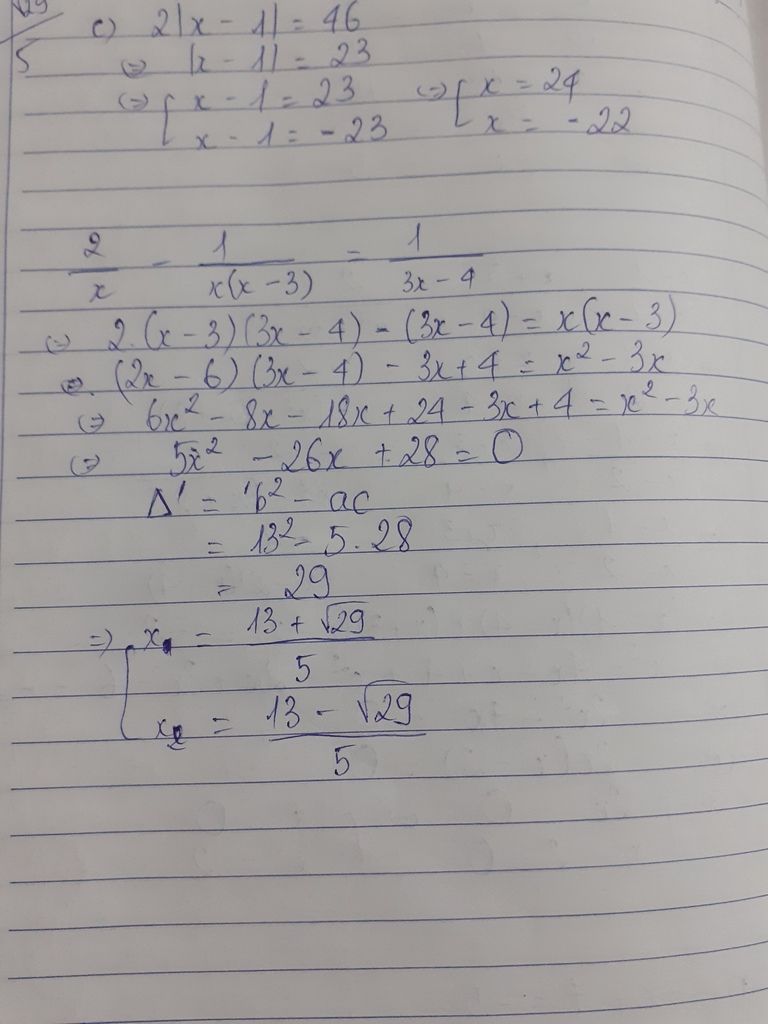 √29
5
c) 2|x - 1| = 46
⇔ |x - 1| = 23
⇔ [ x - 1 = 23 ⇔ [ x = 24
x - 1 = - 23 x = - 22
2/x - 1/x(x - 3) = 1/3x - 4
⇔ 2.(x - 3)(3x - 4) - (3x - 4) = x(x - 3)
⇔ (2x - 6)(3x - 4) - 3x + 4 = x² - 3x
⇔ 6x² - 8x - 18x + 24 - 3x + 4 = x² - 3x
⇔ 5x² - 26x + 28 = 0
Δ' = 'b² - ac
= 13² - 5.28
= 29
⇒ [ x₁ = 13 + √29 / 5
x₂ = 13 - √29 / 5